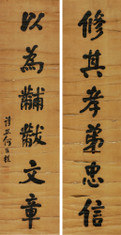 修其孝弟忠信
以為黼黻文章